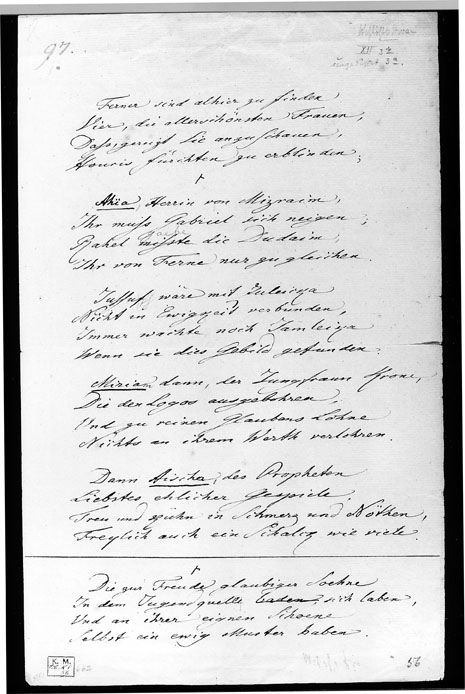 97.
XII 34
32.
Ferner sind alhier zu finden
Vier, die allerschönsten Frauen,
Sie anzuschauen,
Houris fürchten zu erblinden;
Asia, Herrin von Mizraim,
Ihr muss Gabriel sich neigen;
Rahel misste die Dudaim,
Ihr von Ferne nur zu gleichen.
Jussuf, wäre mit Suleicha
Nicht in Ewigkeit verbunden,
Immer wachte noch Jamleicha
Wenn sie dies Gebild gefunden.
Miriam dann, der Jungfraun Krone,
Die den Logos ausgebohren,
Und zu reinen Glaubens Lohne
Nichts an ihrem Werth verlohren.
Dann Aischa, des Propheten
Liebstes ehlicher Gespiele,
Treu und kühn in Schmerz und Nöthen,
Freylich auch ein Schalck wie viele.
Die zur Freude glaubiger Soehne
In dem Jugendquelle baden, sich laben,
Und an ihrer eignen Schoene
Selbst ein ewig Muster haben.
K. M.
56